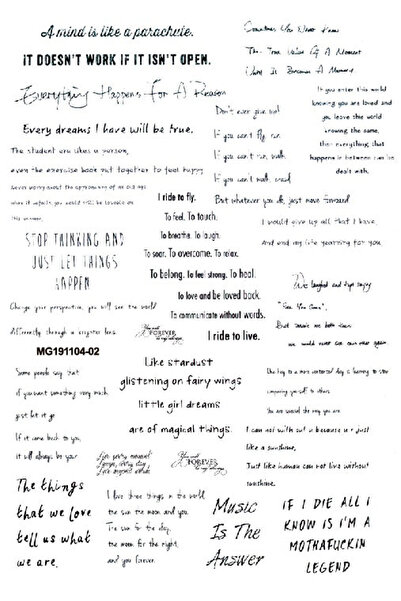 A mind is like a parachute.
IT DOESN'T WORK IF IT ISN'T OPEN.
Sometimes You Never Know
The True Value Of A Moment
Until It Becomes A Memory
Everything Happens For A Reason
If you enter this world
knowing you are loved and
you leave this world
knowing the same,
then everything that
happens in between can be
dealt with.
Every dreams I have will be true.
Don't ever give up!
If you can't fly, run
If you can't run, walk
If you can't walk, crawl
But whatever you do, just move forward
The student era likes a person,
even the exercise book put together to feel happy
Never worry about the
I ride to fly.
To feel. To touch.
To breathe. To laugh.
To soar. To overcome. To relax.
To belong. To feel strong. To heal.
To love and be loved back.
To communicate without words.
I ride to live.
I would give up all that I have,
And end my life yearning for you
STOP THINKING AND
JUST LET THINGS
HAPPEN
We laughed and kept saying
"See You Soon",
But inside we both knew
we would never see each other again.
Change your perspective, you will see the world
differently through a crystal lens.
You and
FOREVER
MG191104-02
Like stardust
glistening on fairy wings
little girl dreams
are of magical things.
Some people say that
if you want something very much,
just let it go
If it came back to you,
it will always be your
The key to a more contented day is learning to stop
comparing yourself to others.
You are special the way you are
I can not with out u because u r just
like a sunshine,
Just like human can not live without
sunshine.
for every moment
You and
FOREVER
The things
that we love
tell us what
we are.
I love three things in the world
the sun the moon and you
The sun for the day,
the moon for the night,
and you forever.
Music
Is The
Answer
IF I DIE ALL I
KNOW IS I'M A
MOTHAFUCKIN
LEGEND